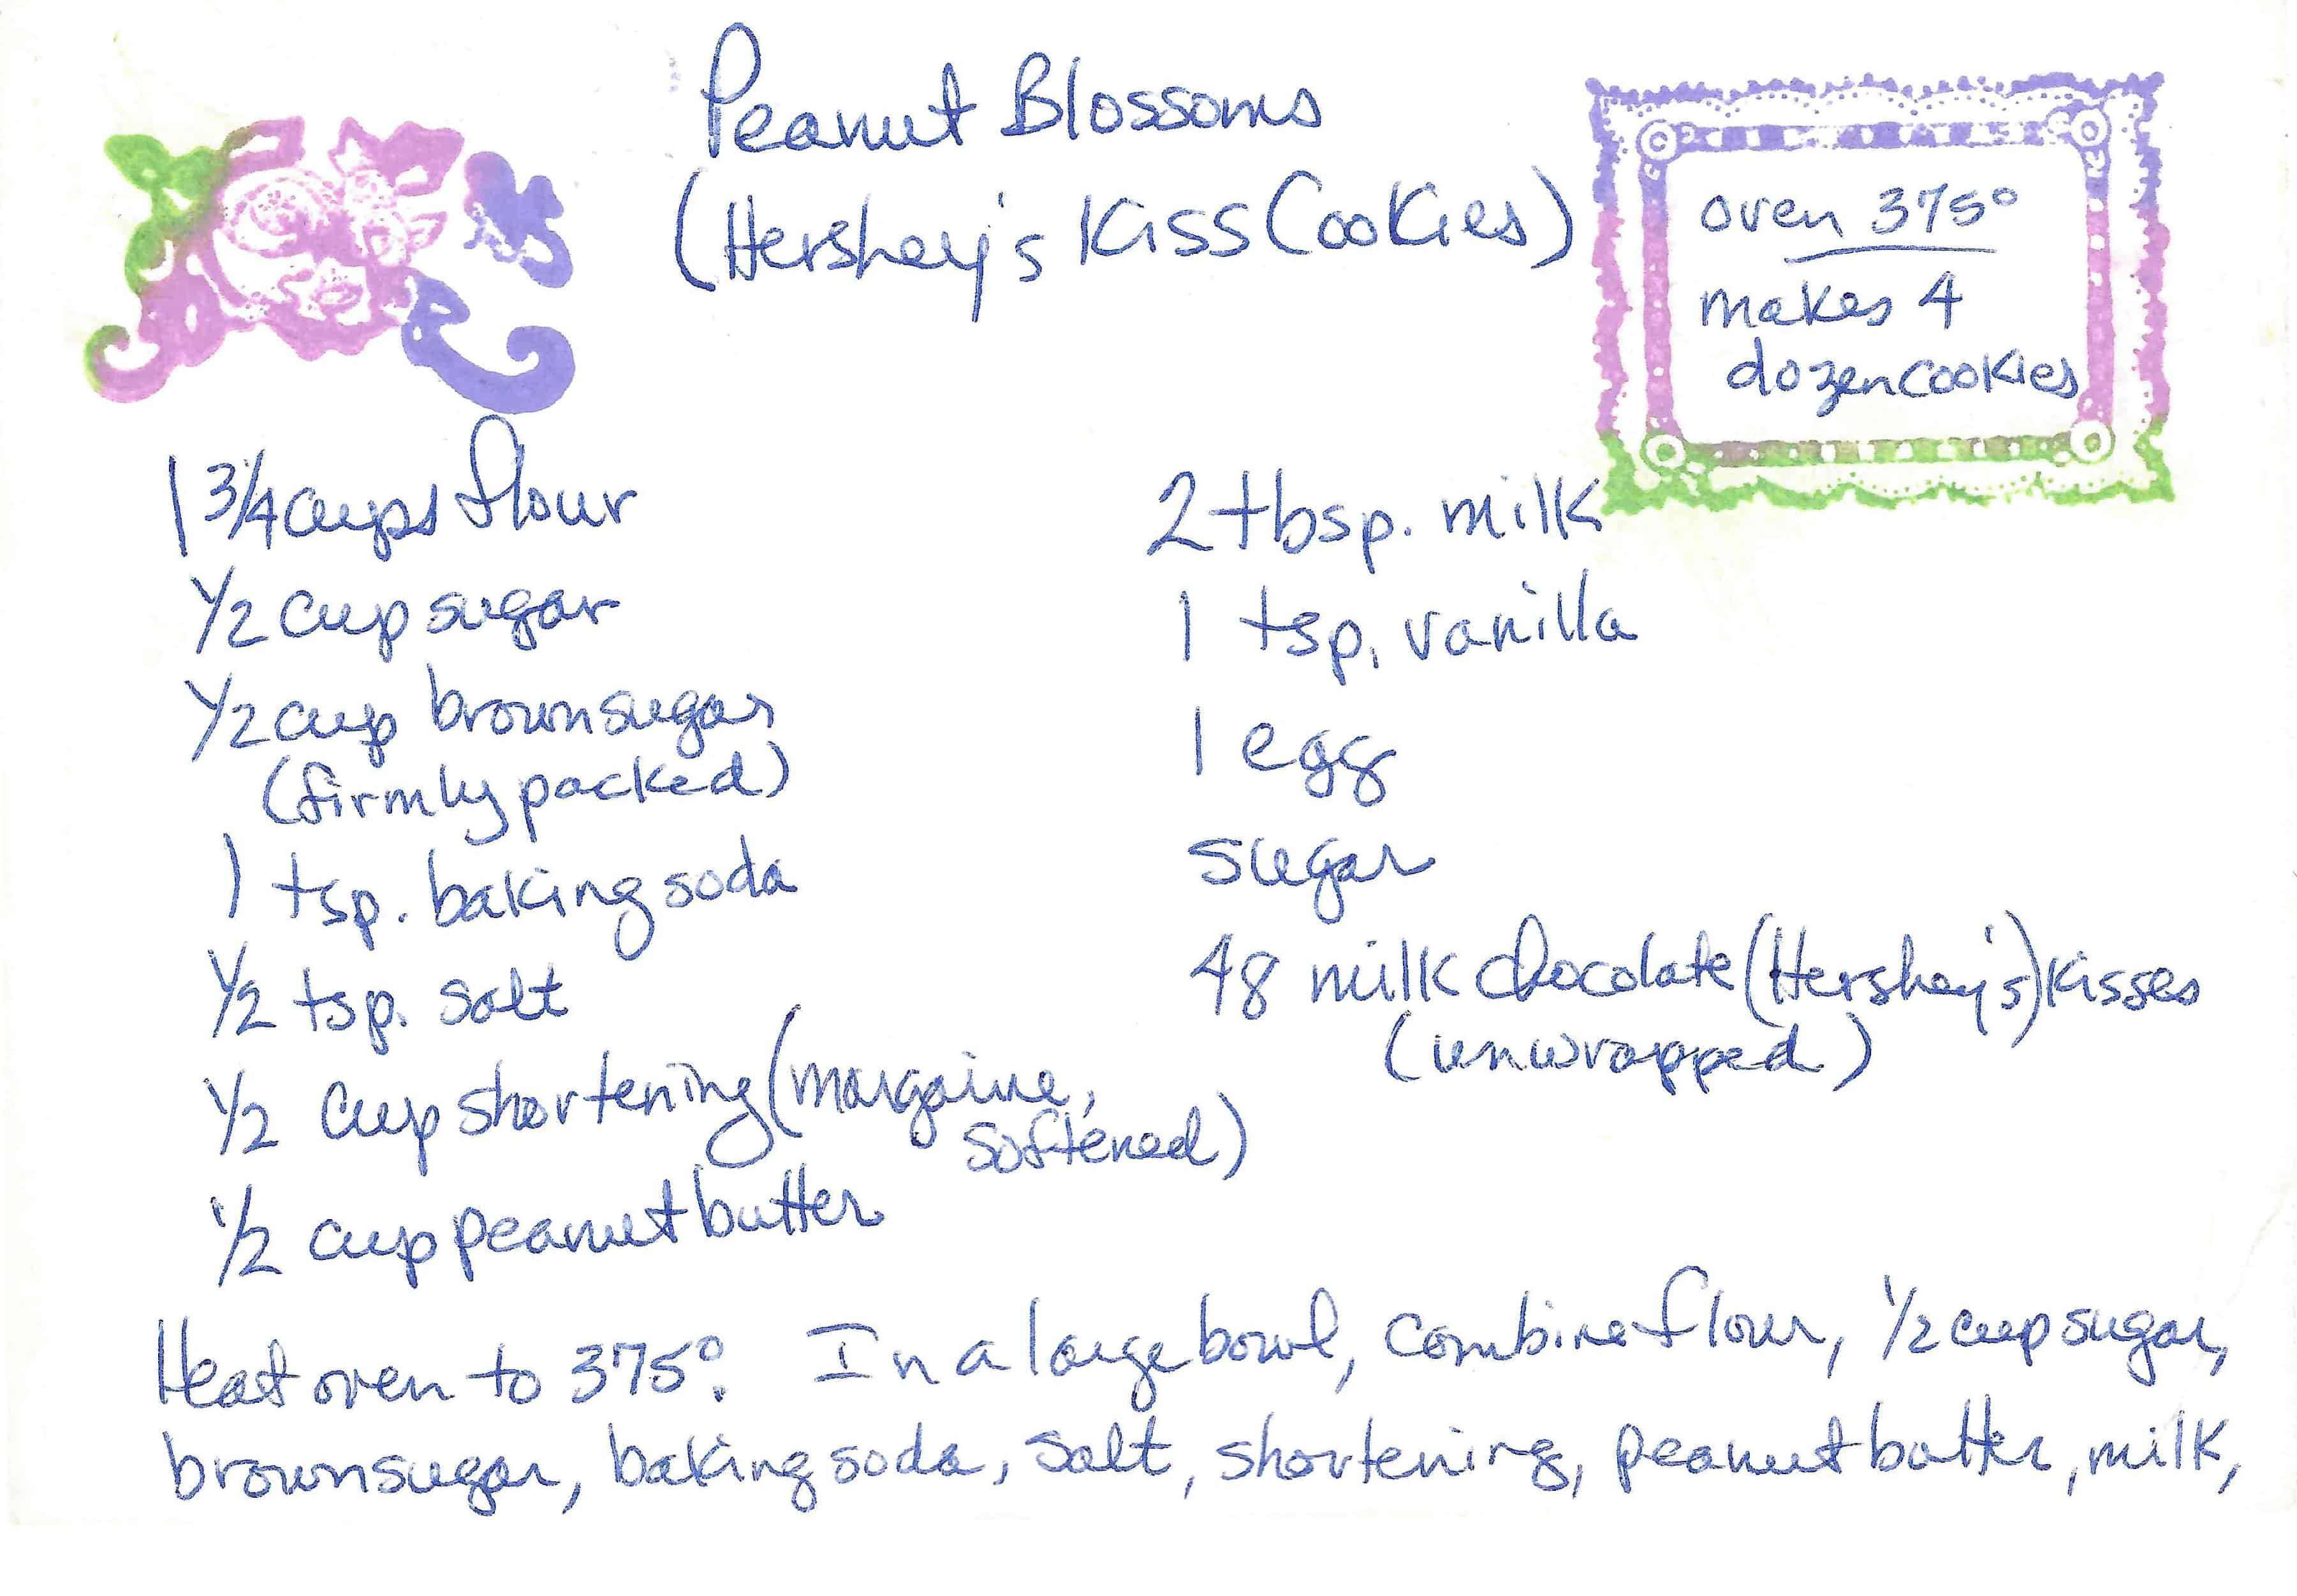 Peanut Blossoms
(Hershey's Kiss Cookies)
oven 375°
makes 4
dozen cookies
1 3/4 cups flour
1/2 cup sugar
1/2 cup brown sugar
(firmly packed)
1 tsp. baking soda
1/2 tsp. salt
1/2 cup shortening (margarine,
softened)
1/2 cup peanut butter
2 tbsp. milk
1 tsp. vanilla
1 egg
sugar
48 milk chocolate (Hershey's) kisses
(unwrapped)
Heat oven to 375°. In a large bowl, combine flour, 1/2 cup sugar,
brown sugar, baking soda, salt, shortening, peanut butter, milk,